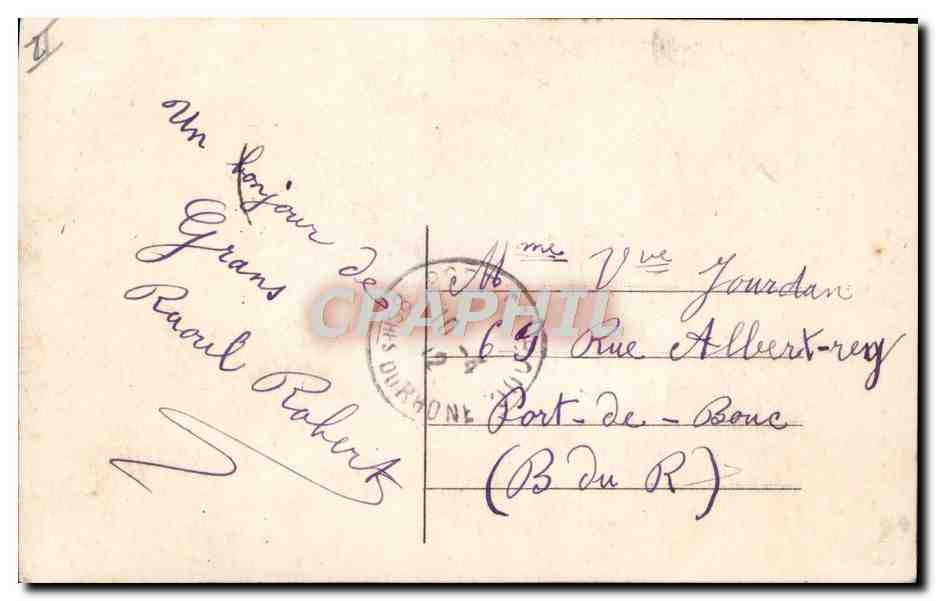 Un bonjour de
Grans
Raoul Robert
Mme Vve Jourdan
69 Rue Albert-rey
Port-de-Bouc
(B du R)
10 -4
12
BOUCHES DU RHONE
CPAPHIL